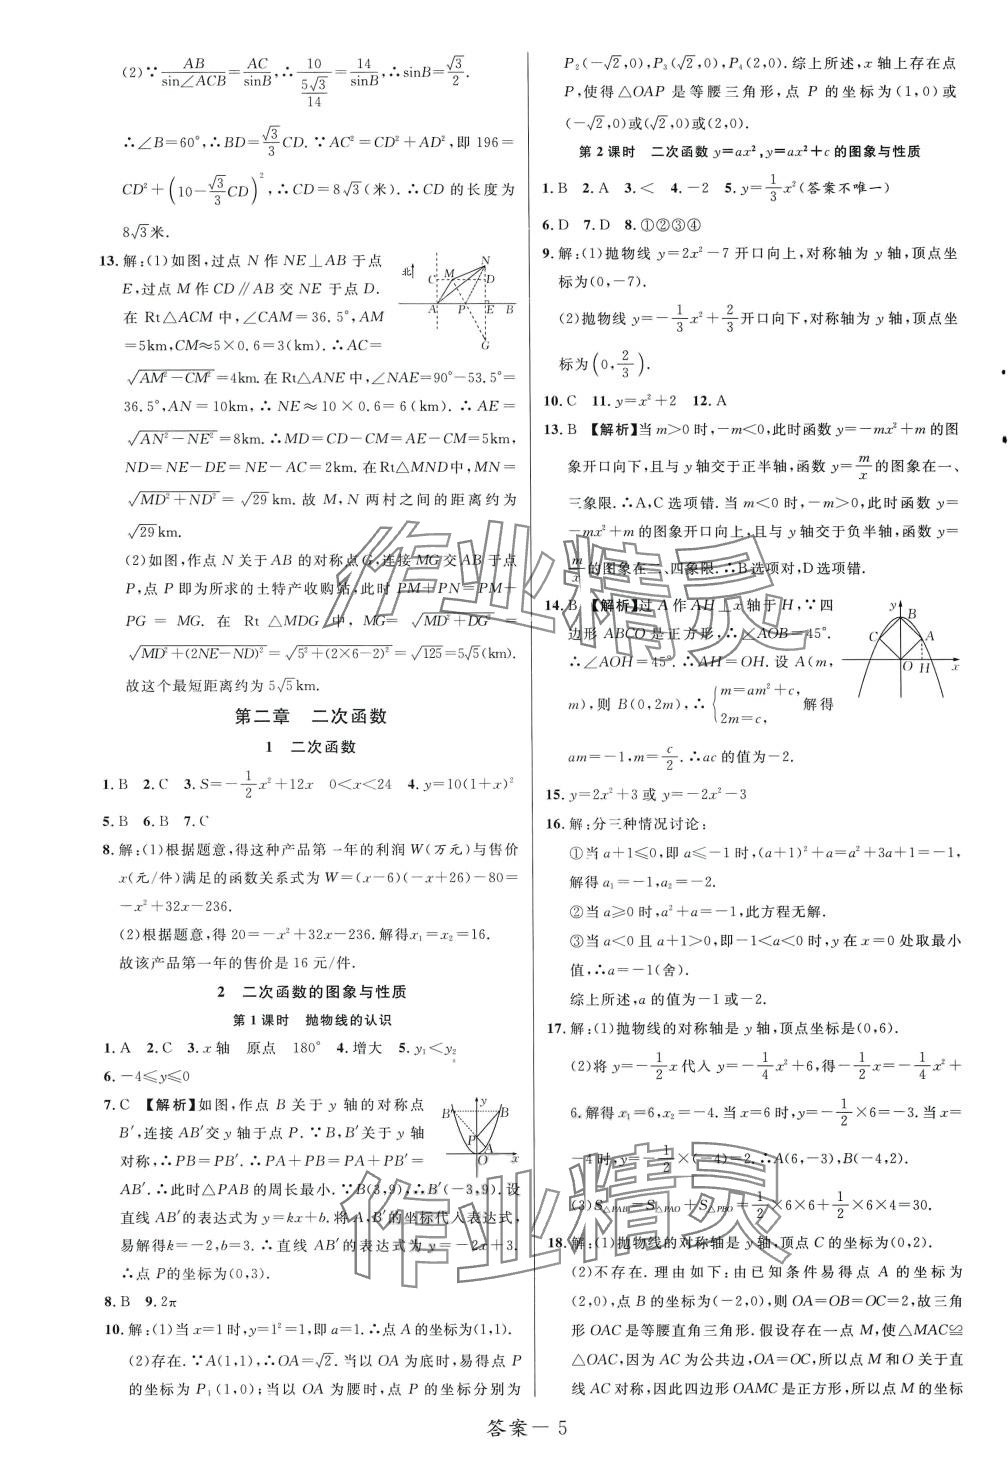 (2)∵AB/sin∠ACB=AC/sinB,∴10/(5√3/14)=14/sinB,∴sinB=√3/2.
∴∠B=60°,∴BD=√3/3CD.∵AC²=CD²+AD²,即 196=
CD²+(10-√3/3CD)²,∴CD=8√3(米).∴CD 的长度为
8√3米.
13.解:(1)如图,过点 N 作 NE⊥AB 于点
E,过点 M 作 CD∥AB 交 NE 于点 D.
在 Rt△ACM 中,∠CAM=36.5°,AM
=5km,CM≈5×0.6=3(km).∴AC=
√(AM²-CM²)=4km.在Rt△ANE中,∠NAE=90°-53.5°=
36.5°,AN=10km,∴NE≈10×0.6=6(km).∴AE=
√(AN²-NE²)=8km.∴MD=CD-CM=AE-CM=5km,
ND=NE-DE=NE-AC=2km.在Rt△MND中,MN=
√(MD²+ND²)=√29 km.故 M,N 两村之间的距离约为
√29km.
(2)如图,作点 N 关于 AB 的对称点G,连接 MG 交 AB 于点
P,点 P 即为所求的土特产收购站,此时 PM+PN=PM+
PG=MG.在 Rt△MDG 中,MG=√(MD²+DG²)=
√(MD²+(2NE-ND)²)=√(5²+(2×6-2)²)=√125=5√5(km).
故这个最短距离约为 5√5km.
北
C M N D A P E B G
第二章 二次函数
1 二次函数
1.B 2.C 3.S=-1/2x²+12x 0<x<24 4.y=10(1+x)²
5.B 6.B 7.C
8.解:(1)根据题意,得这种产品第一年的利润 W(万元)与售价
x(元/件)满足的函数关系式为 W=(x-6)(-x+26)-80=
-x²+32x-236.
(2)根据题意,得 20=-x²+32x-236.解得x₁=x₂=16.
故该产品第一年的售价是 16 元/件.
2 二次函数的图象与性质
第 1 课时 抛物线的认识
1.A 2.C 3.x 轴 原点 180° 4.增大 5.y₁<y₂
6.-4≤y≤0
7.C 【解析】如图,作点 B 关于 y 轴的对称点
B′,连接 AB′交 y 轴于点 P.∵B,B′关于 y 轴
对称,∴PB=PB′.∴PA+PB=PA+PB′=
AB′.∴此时△PAB 的周长最小.∵B(3,9),∴B′(-3,9).设
直线 AB′的表达式为 y=kx+b.将A,B′的坐标代入表达式,
易解得k=-2,b=3.∴直线 AB′的表达式为 y=-2x+3.
∴点 P的坐标为(0,3).
B′ y B P A O x
8.B 9.2π
10.解:(1)当 x=1 时,y=1²=1,即 a=1.∴点 A 的坐标为(1,1).
(2)存在.∵A(1,1),∴OA=√2.当以 OA 为底时,易得点 P
的坐标为 P₁(1,0);当以 OA 为腰时,点 P 的坐标分别为
P₂(-√2,0),P₃(√2,0),P₄(2,0).综上所述,x 轴上存在点
P,使得△OAP 是等腰三角形,点 P 的坐标为(1,0)或
(-√2,0)或(√2,0)或(2,0).
第 2 课时 二次函数 y=ax²,y=ax²+c 的图象与性质
1.B 2.A 3.< 4.-2 5.y=1/3x²(答案不唯一)
6.D 7.D 8.①②③④
9.解:(1)抛物线 y=2x²-7 开口向上,对称轴为 y 轴,顶点坐
标为(0,-7).
(2)抛物线 y=-1/3x²+2/3开口向下,对称轴为 y 轴,顶点坐
标为(0,2/3).
10.C 11.y=x²+2 12.A
13.B 【解析】当 m>0 时,-m<0,此时函数 y=-mx²+m 的图
象开口向下,且与 y 轴交于正半轴,函数 y=m/x的图象在一、
三象限.∴A,C 选项错.当 m<0 时,-m>0,此时函数 y=
-mx²+m 的图象开口向上,且与 y 轴交于负半轴,函数 y=
m/x的图象在二、四象限.∴B选项对,D选项错.
14.B 【解析】过 A 作 AH⊥x 轴于 H,∵四
边形 ABCO 是正方形,∴∠AOB=45°.
∴∠AOH=45°.∴AH=OH.设 A(m,
m),则 B(0,2m),∴{m=am²+c, 2m=c, 解得
am=-1,m=c/2.∴ac 的值为-2.
y B C A O H x
15.y=2x²+3 或 y=-2x²-3
16.解:分三种情况讨论:
①当 a+1≤0,即 a≤-1 时,(a+1)²+a=a²+3a+1=-1,
解得 a₁=-1,a₂=-2.
②当 a≥0 时,a²+a=-1,此方程无解.
③当 a<0 且 a+1>0,即-1<a<0 时,y 在 x=0 处取最小
值,∴a=-1(舍).
综上所述,a 的值为-1 或-2.
17.解:(1)抛物线的对称轴是 y 轴,顶点坐标是(0,6).
(2)将 y=-1/2x 代入 y=-1/4x²+6,得-1/2x=-1/4x²+
6.解得 x₁=6,x₂=-4.当 x=6 时,y=-1/2×6=-3.当 x=
-4 时,y=-1/2×(-4)=2.∴A(6,-3),B(-4,2).
(3)S△PAB=S△PAO+S△PBO=1/2×6×6+1/2×6×4=30.
18.解:(1)抛物线的对称轴是 y 轴,顶点 C 的坐标为(0,2).
(2)不存在.理由如下:由已知条件易得点 A 的坐标为
(2,0),点 B 的坐标为(-2,0),则 OA=OB=OC=2,故三角
形 OAC 是等腰直角三角形.假设存在一点 M,使△MAC≌
△OAC,因为 AC 为公共边,OA=OC,所以点 M 和 O 关于直
线 AC 对称,因此四边形 OAMC 是正方形,所以点 M 的坐标
答案-5
作业精灵
作业精灵